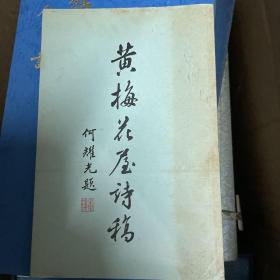 黄梅花屋詩稿
何耀光題